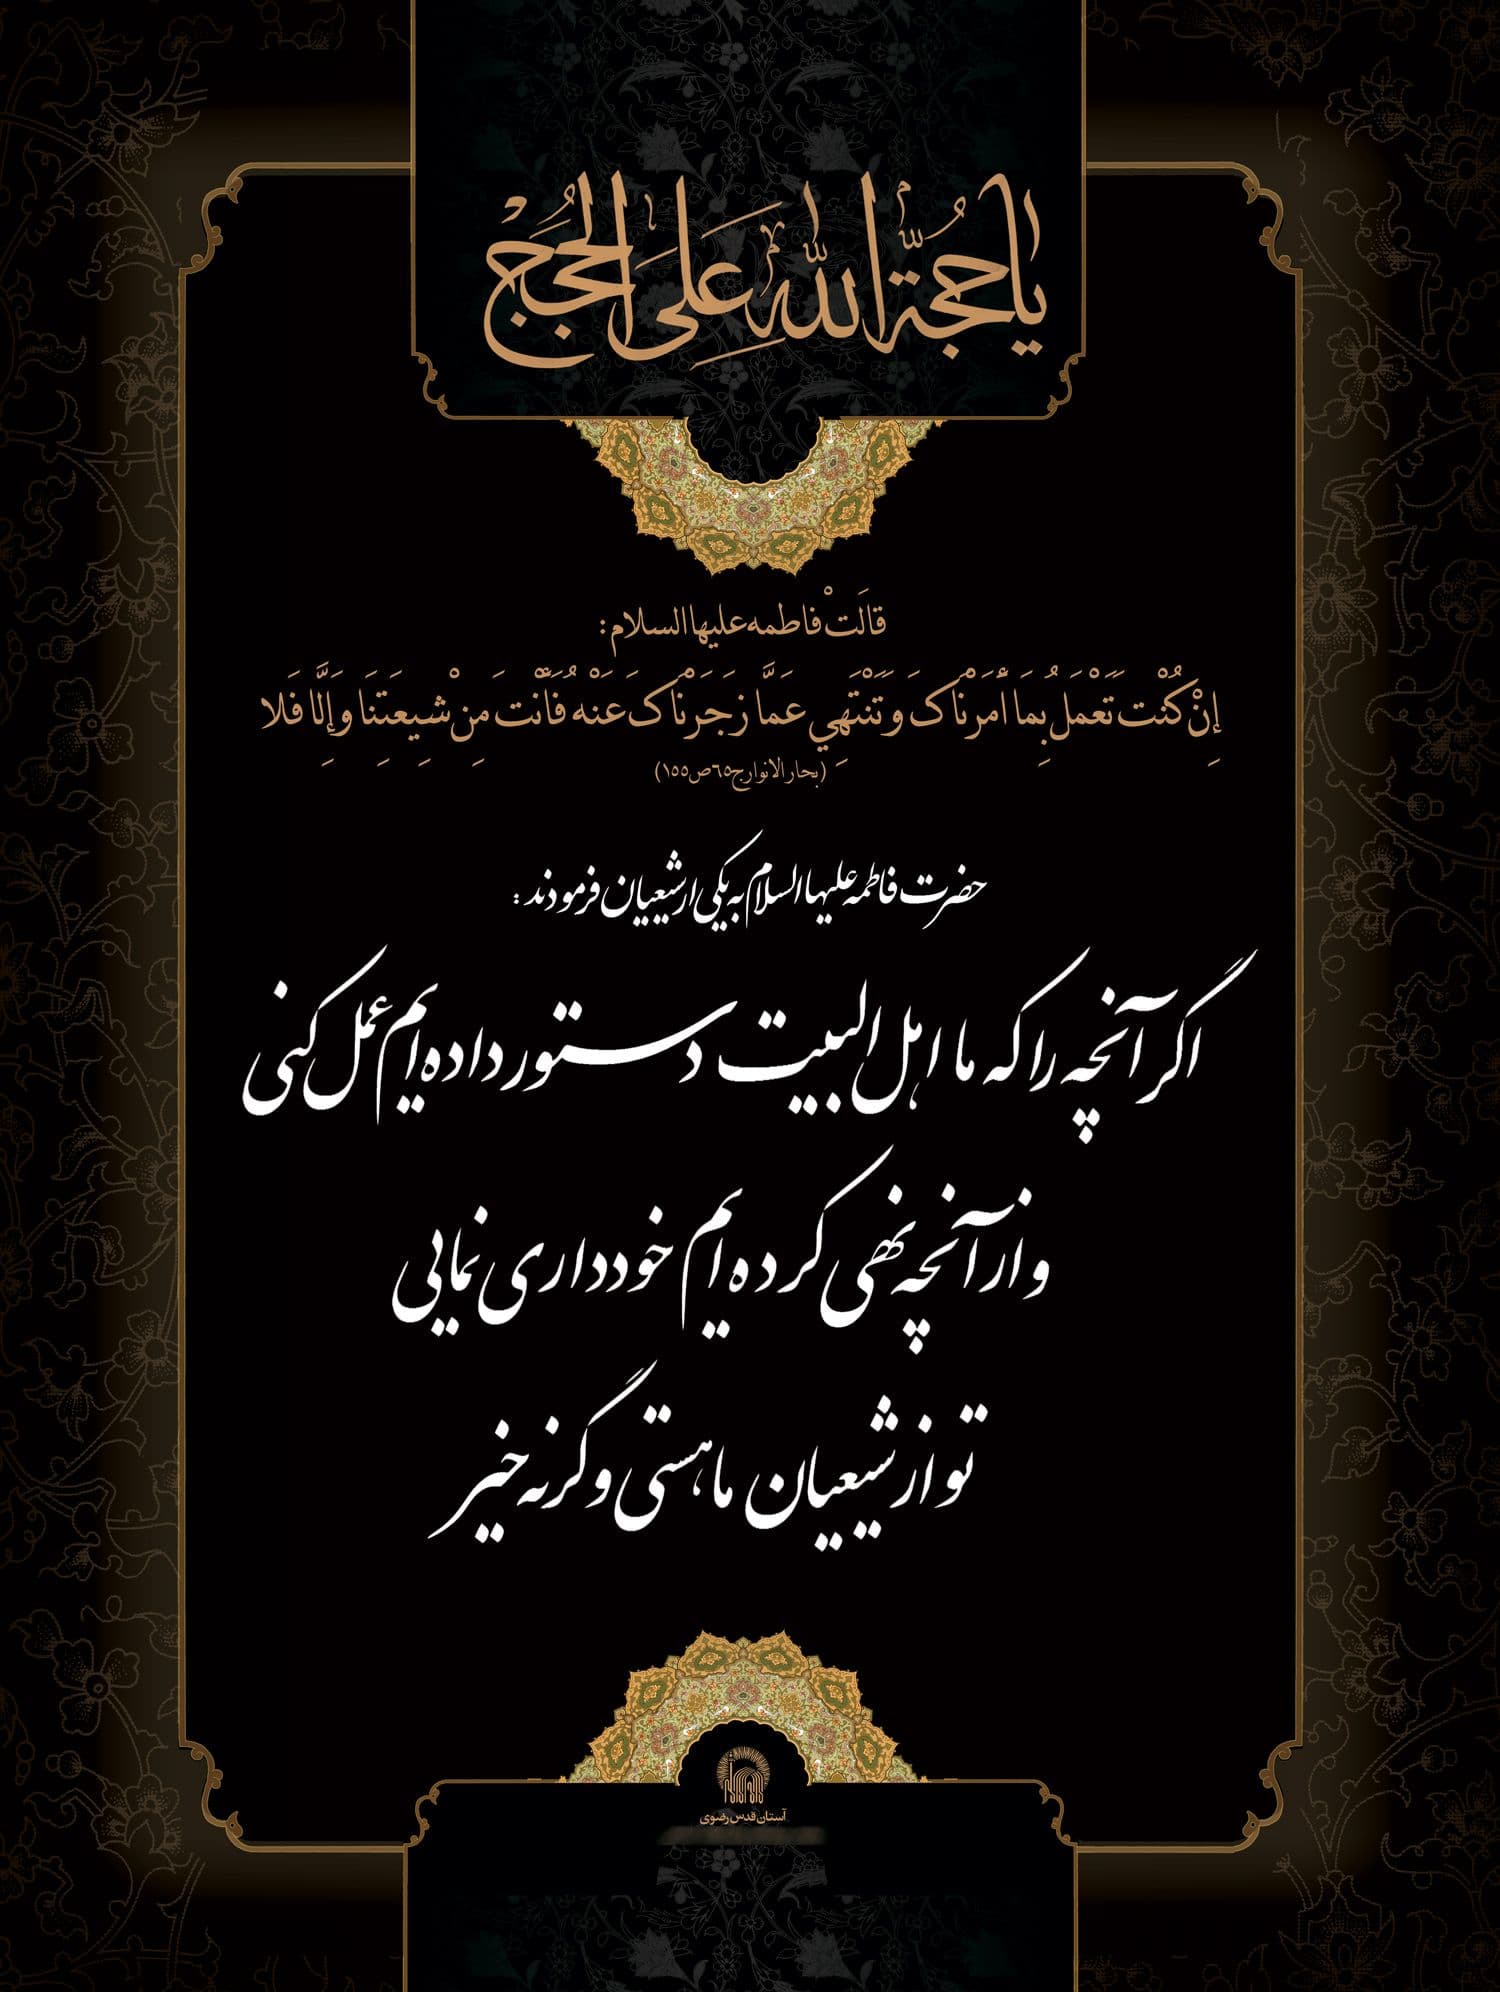 یا حُجَّةَ اللهِ عَلَی الحُجَج
قالَتْ فاطمه علیها السلام:
إِنْ كُنْتَ تَعْمَلُ بِمَا أَمَرْنَاكَ وَ تَنْتَهِي عَمَّا زَجَرْنَاكَ عَنْهُ فَأَنْتَ مِنْ شِيعَتِنَا وَ إِلَّا فَلَا
(بحارالانوار ج٦٥ص١٥٥)
حضرت فاطمه علیها السلام به یکی از شیعیان فرمودند:
اگر آنچه را که ما اهل البیت دستور داده ایم عمل کنی
و از آنچه نهی کرده ایم خودداری نمایی
تو از شیعیان ما هستی و گرنه خیر
آستان قدس رضوی